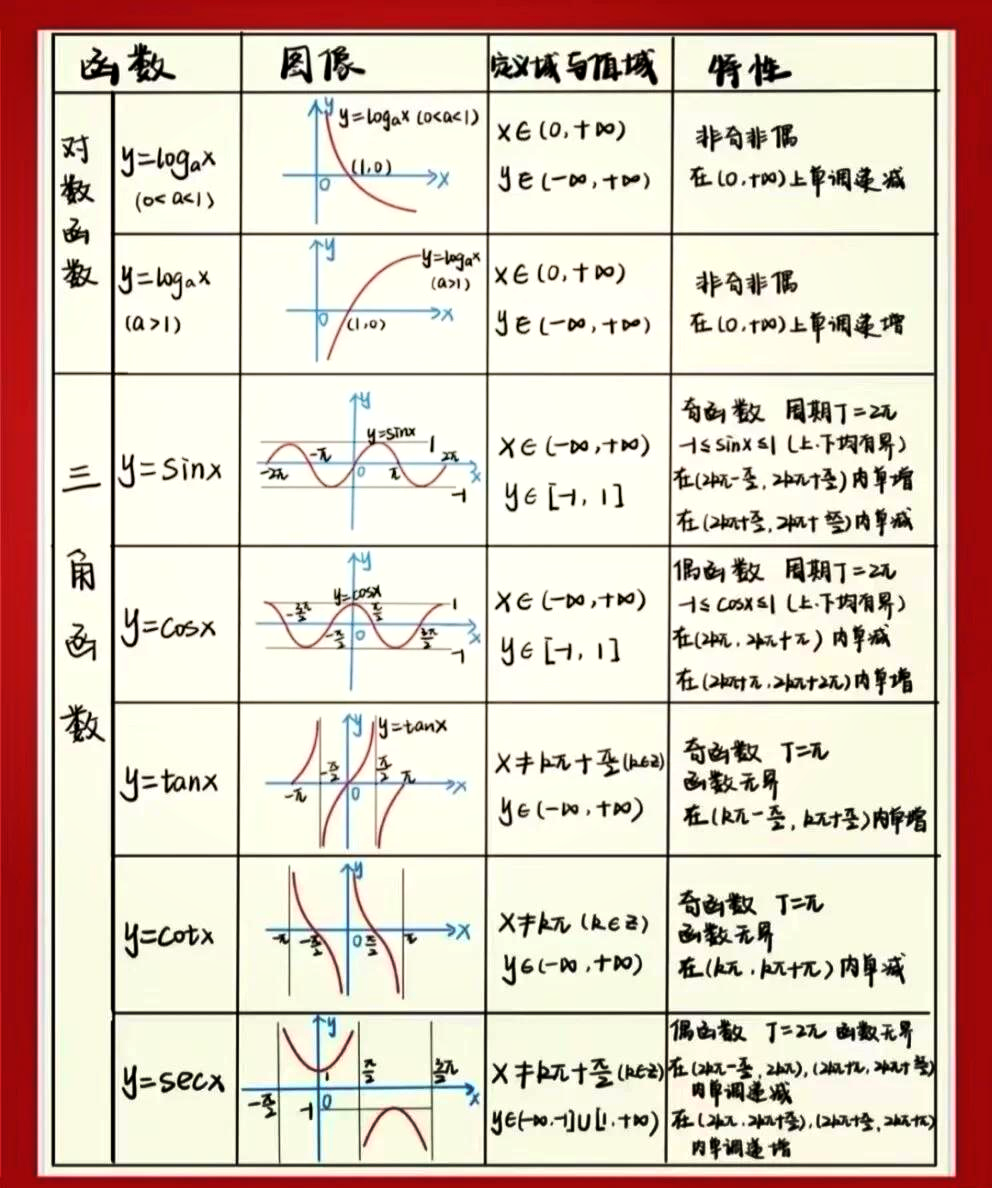 函数 图像 定义域与值域 特性
对数函数
y=logₐx
(0<a<1)
y
y=logₐx (0<a<1)
(1,0)
0
x
x∈(0,+∞)
y∈(-∞,+∞)
非奇非偶
在(0,+∞)上单调递减
y=logₐx
(a>1)
y
y=logₐx
(a>1)
0
(1,0)
x
x∈(0,+∞)
y∈(-∞,+∞)
非奇非偶
在(0,+∞)上单调递增
三角函数
y=sinx
y
y=sinx
1
-2π -π 0 π 2π x
-1
x∈(-∞,+∞)
y∈[-1,1]
奇函数 周期T=2π
-1≤sinx≤1 (上.下均有界)
在(2kπ-π/2, 2kπ+π/2)内单增
在(2kπ+π/2, 2kπ+3π/2)内单减
y=cosx
y
y=cosx
1
-3π/2 -π/2 0 π/2 3π/2 x
-1
x∈(-∞,+∞)
y∈[-1,1]
偶函数 周期T=2π
-1≤cosx≤1 (上.下均有界)
在(2kπ, 2kπ+π)内单减
在(2kπ+π, 2kπ+2π)内单增
y=tanx
y
y=tanx
-π -π/2 0 π/2 π x
x≠kπ+π/2(k∈z)
y∈(-∞,+∞)
奇函数 T=π
函数无界
在(kπ-π/2, kπ+π/2)内单增
y=cotx
y
-π -π/2 0 π/2 π x
x≠kπ (k∈z)
y∈(-∞,+∞)
奇函数 T=π
函数无界
在(kπ, kπ+π)内单减
y=secx
y
1
-π/2 0 π/2 3π/2 x
-1
x≠kπ+π/2(k∈z)
y∈(-∞,-1]∪[1,+∞)
偶函数 T=2π 函数无界
在(2kπ-π/2, 2kπ),(2kπ+π, 2kπ+3π/2)
内单调递减
在(2kπ, 2kπ+π/2),(2kπ+π/2, 2kπ+π)
内单调递增